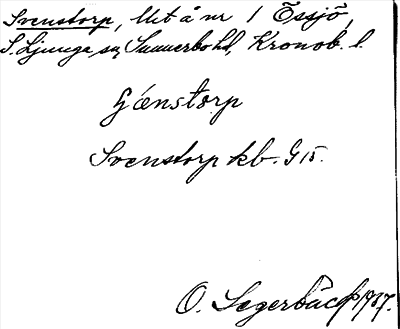 Svenstorp, Utå nr 1 Össjö,
S. Ljunga sn, Sunnerbo hd, Kronob. l.
Gænstorp
Svenstorp kb. G15.
O. Segerbäck 1937.